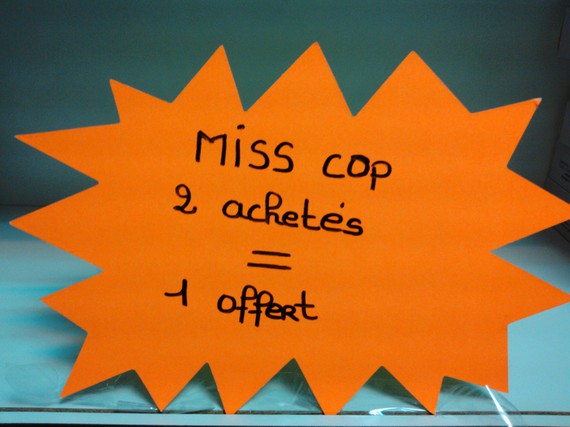 Miss cop
2 achetés
=
1 offert